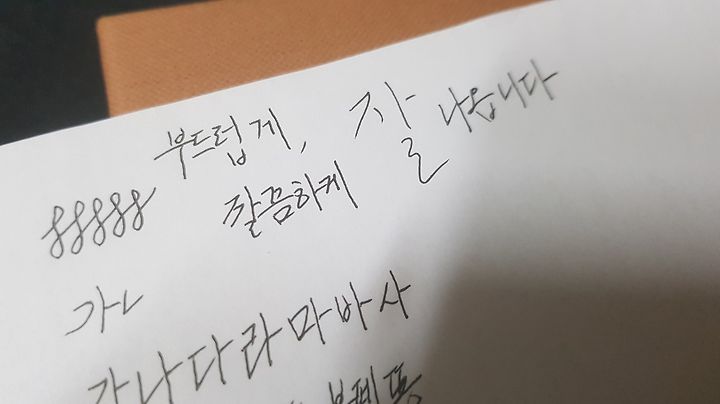 부드럽게, 잘 나옵니다
깔끔하게
가ㄴ
가나다라마바사